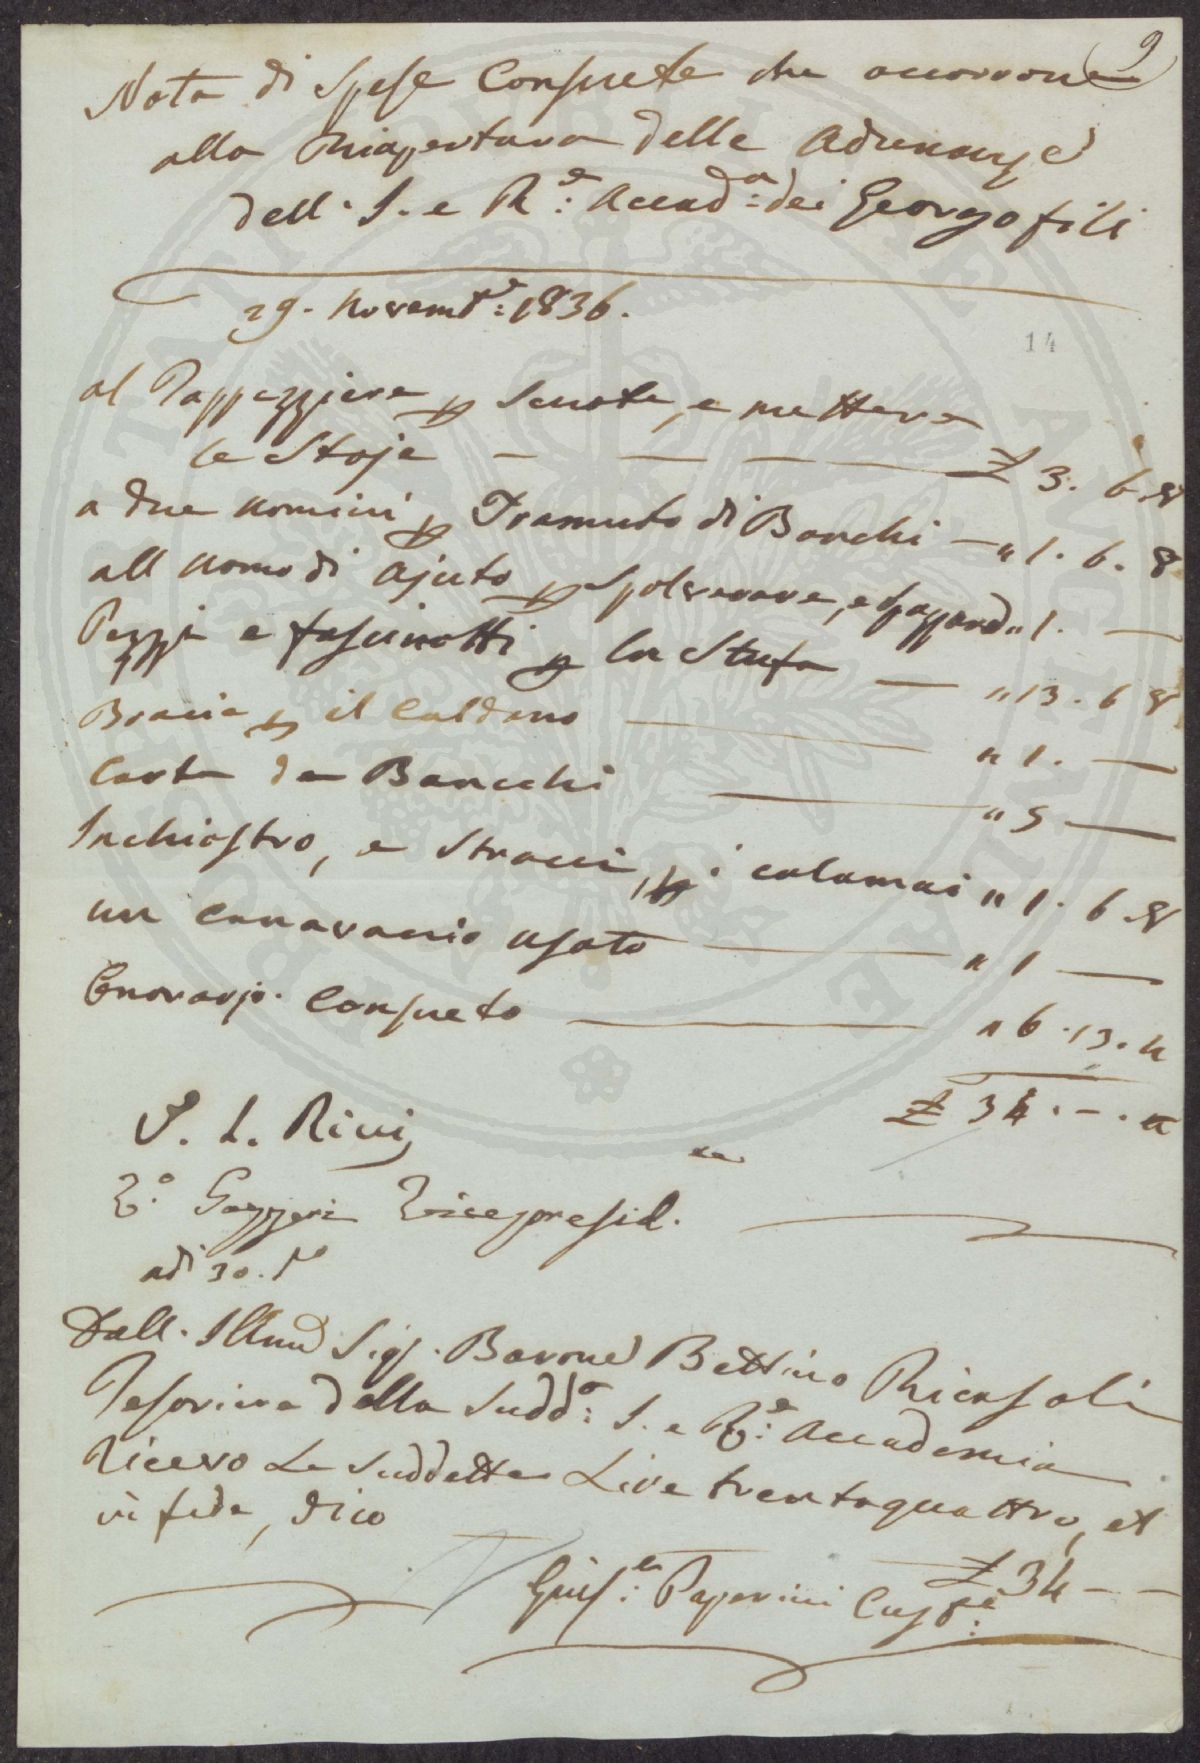 9
Nota di Spese Consuete che occorrono
alla Riapertura delle Adunanze
dell'I. e R.e Accad.a dei Georgofili
29. Novemb.e 1836.
14
al Tappezziere p Scuote, e mettere
le Stoje — — — £ 3. 6. 8
a due uomini p Tramuto di Banchi — " 1. 6. 8
all uomo di Ajuto p Spolverare, e Spazzare " 1. —
Pezzi e fascinotti p la Stufa — " 13. 6 8
Bracia p il Caldano — " 1. —
Carta da Bancchi — " 5 —
Inchiostro, e Stracci, p i calamai " 1. 6. 8
un Canavaccio usato — " 1 —
Onorario Consueto — " 6. 13. 4
£ 34. -. "
V. L. Rivi
V.o Gazzeri Vicepresid.
adi 30. d.o
Dall. Illmo Sig. Barone Bettino Ricasoli
Tesoriere della Sudd.a I. e R.e Accademia
Ricevo Le Suddette Lire trentaquattro, et
in fede, dico
£ 34 - -
Gius.e Paperini Cusp.e